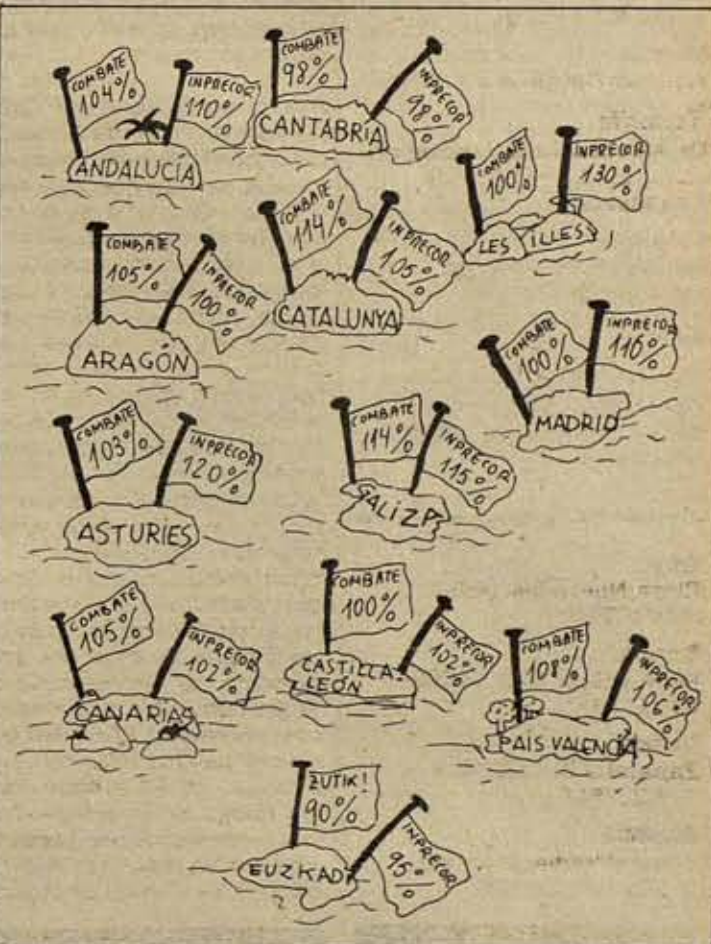 COMBATE
104%
INPRECOR
110%
ANDALUCÍA
COMBATE
98%
INPRECOR
98%
CANTABRIA
COMBATE
100%
INPRECOR
130%
LES ILLES
COMBATE
105%
INPRECOR
100%
ARAGÓN
COMBATE
114%
INPRECOR
105%
CATALUNYA
COMBATE
100%
INPRECOR
116%
MADRID
COMBATE
103%
INPRECOR
120%
ASTURIES
COMBATE
114%
INPRECOR
115%
GALIZA
COMBATE
105%
INPRECOR
102%
CANARIAS
COMBATE
100%
INPRECOR
102%
CASTILLA-
LEÓN
COMBATE
108%
INPRECOR
106%
PAIS VALENCIÀ
ZUTIK!
90%
INPRECOR
95%
EUZKADI